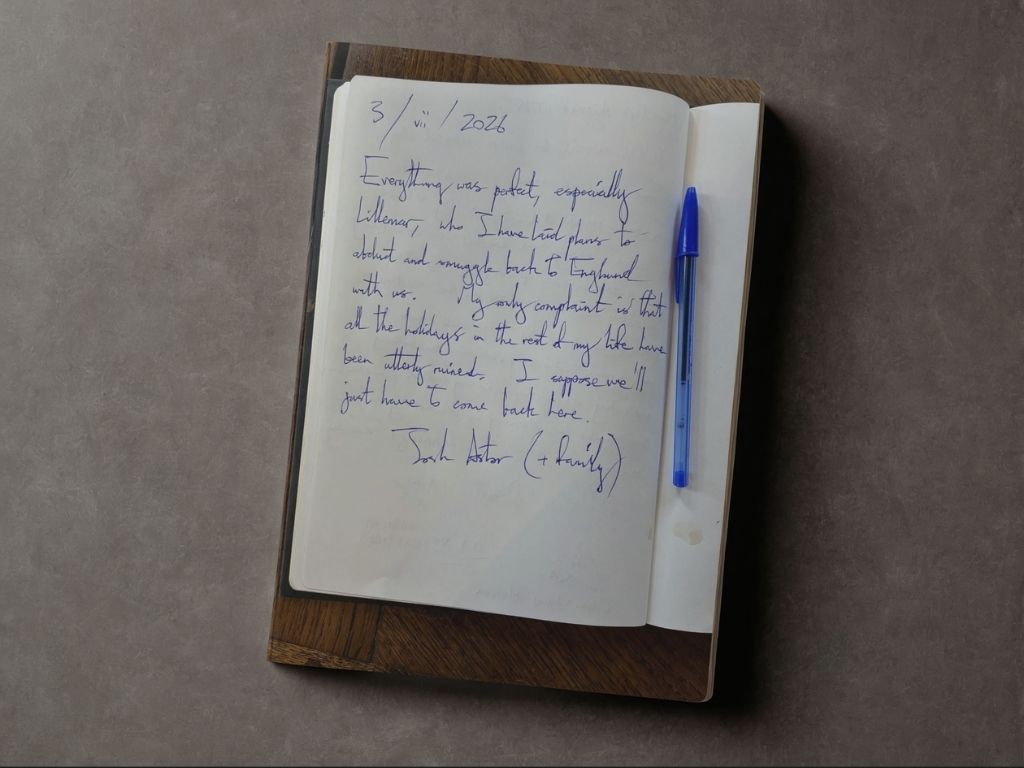 3/vii/2026
Everything was perfect, especially
Lillemor, who I have laid plans to
abduct and smuggle back to England
with us. My only complaint is that
all the holidays in the rest of my life have
been utterly ruined. I suppose we'll
just have to come back here.
Josh Astor (+ family)